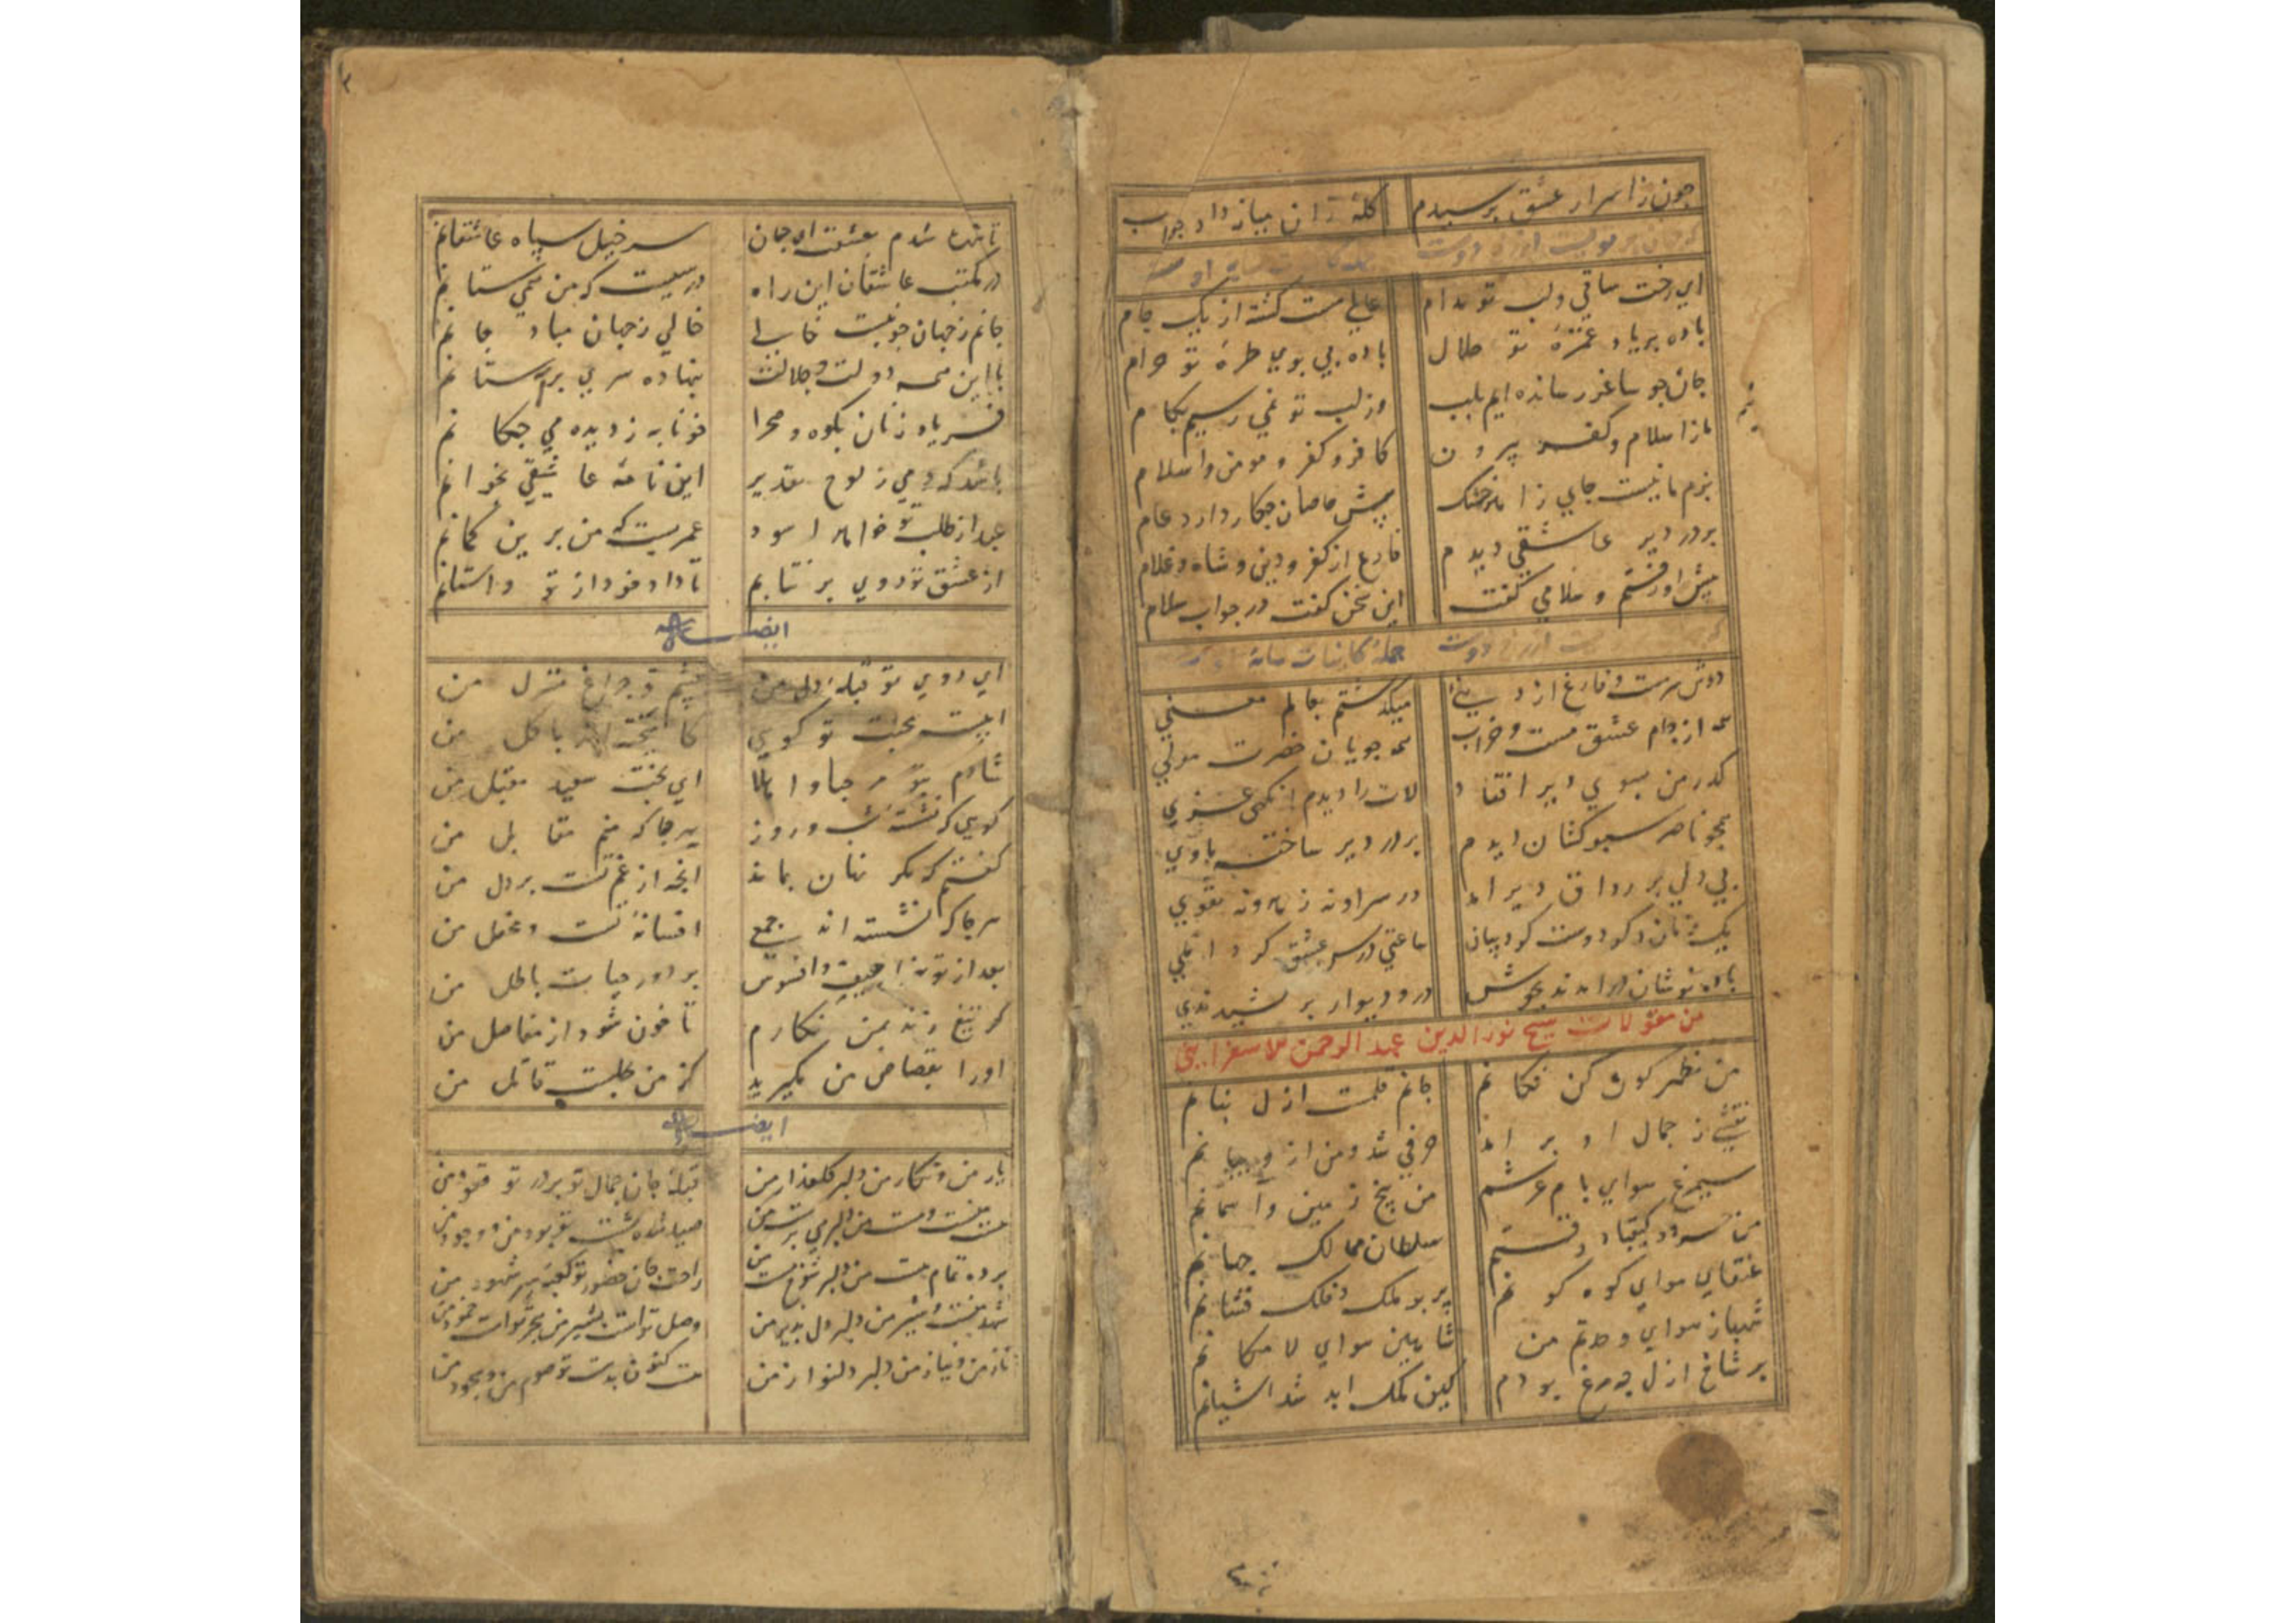 چون ز اسرار عشق پرسیدم کلهٔ زان میان داد جواب
جملهٔ کاینات سایهٔ اوست
ای رخت ساقی و لب تو مدام عالمی مست گشته از یک جام
باده بر یاد غمزهٔ تو حلال باده بی بوی طرهٔ تو حرام
جان چو ساغر رسانده ایم بلب وز لب تو نمی رسیم بکام
ما ز اسلام و کفر بیرون کافر و کفر و مومن و اسلام
بزم ما نیست جای زاهد خشک پیش خاصان چکار دارد عام
بر در دیر عاشقی دیدم فارغ از کفر و دین و شاه و غلام
پیش او رفتم و سلامی گفت این سخن گفت در جواب سلام
دوست جملهٔ کاینات سایهٔ
دوش سرمست و فارغ از دنیی میگذشتم بعالم معنی
همه از جام عشق مست و خراب همه جویان حضرت مولی
گذر من بسوی دیر افتاد لات را دیدم
همچو ناصر سبو کشان دیدم بر در دیر ساخته ماوی
بی دلی بر رواق دیر آمد در سر او نه زهد و نه تقوی
یک زمان ذکر دوست کرد بیان ساعتی درس عشق کرد املی
باده نوشان در آمدند بجوش در و دیوار بر کشید ندی
من مقولات شیخ نور الدین عبد الرحمن الاسفراینی
من مظهر کون کن فکانم جانم قلمست ازل بنام
نقشی ز جمال او بر آمد حرفی شد و من از و بیانم
سیمرغ هوای بام عرشم من پنج زمین و آسمانم
من خسرو و کیقباد و رستم سلطان ممالک جهانم
عنقای هوای کوه کونم پر بر ملک و فلک فشانم
شهباز هوای وحدتم من شاهین هوای لا مکانم
بر شاخ ازل چو مرغ بودم کین ملک ابد شد آشیانم
تا بنده شدم بعشقت ای جان سرخیل سپاه عاشقانم
در مکتب عاشقان این راه درسیست که من همی ستانم
جانم ز جهان چو نیست خالی خالی ز جهان مباد جانم
با این همه دولت و جلالت بنهاده سری بر آستانم
فریاد زنان بکوه و صحرا خونابه ز دیده می چکانم
باشد که دمی ز لوح تقدیر این نامهٔ عاشقی بخوانم
بعد از طلب تو خواهد آسود عمریست که من برین گمانم
از عشق تو روی بر نتابم تا داد خود از تو واستانم
ایضاله
ای روی تو قبلهٔ دل من چشم و چراغ منزل من
اینست محبت تو گویی کامیخته اند با گل من
شادم بتو مرحبا و اهلا ای بخت سعید مقبل من
گویی که نشسته شب و روز هر جا که منم مقابل من
گفتم که مگر نهان بماند انچه از غم تست بر دل من
هر جا که نشسته اند جمعی افسانهٔ تست و محفل من
بعد از تو هزار حیف و افسوس بر دور حیات باطل من
گر تیغ زند بمن نگارم تا خون شود از مفاصل من
او را بقصاص من مگیرید کز من بحلیست قاتل من
ایضاله
یار من و نگار من دلبر گلعذار من قبلهٔ جان جمال تو بر در تو قعود من
من و جود من
برده تمام هست من دلبر شوخ مست من راحت جان حضور تو کعبهٔ سر شهود من
من دلبر دل پذیر من وصل تو
ناز من و نیاز من دلبر دلنواز من هست کنون بدست تو صوم من و سجود من